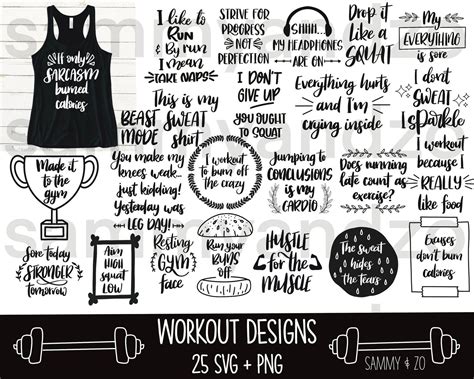 If only
SARCASM
burned
calories
I like to
RUN
& By run
I mean
TAKE NAPS
STRIVE FOR
PROGRESS
NOT
PERFECTION
SHHH...
MY HEADPHONES
ARE ON
Drop it
like a
SQUAT
My
EVERYTHING
is sore
This is my
BEAST SWEAT
MODE shirt
I DON'T
GIVE UP
YOU OUGHT
TO SQUAT
Everything hurts
and I'm
crying inside
I don't
SWEAT
I Sparkle
Made it
to the
gym
You make my
knees weak...
just kidding!
Yesterday was
LEG DAY!
I workout
to burn off
the crazy
Jumping to
CONCLUSIONS
is my
CARDIO
Does running
late count as
exercise?
I workout
because I
REALLY
like food
Sore today
STRONGER
tomorrow
Aim
HIGH
squat
LOW
Resting
GYM
face
Run your
BUNS
off
HUSTLE
FOR the
MUSCLE
The sweat
hides
the tears
Excuses
don't burn
calories
WORKOUT DESIGNS
25 SVG + PNG
SAMMY & ZO